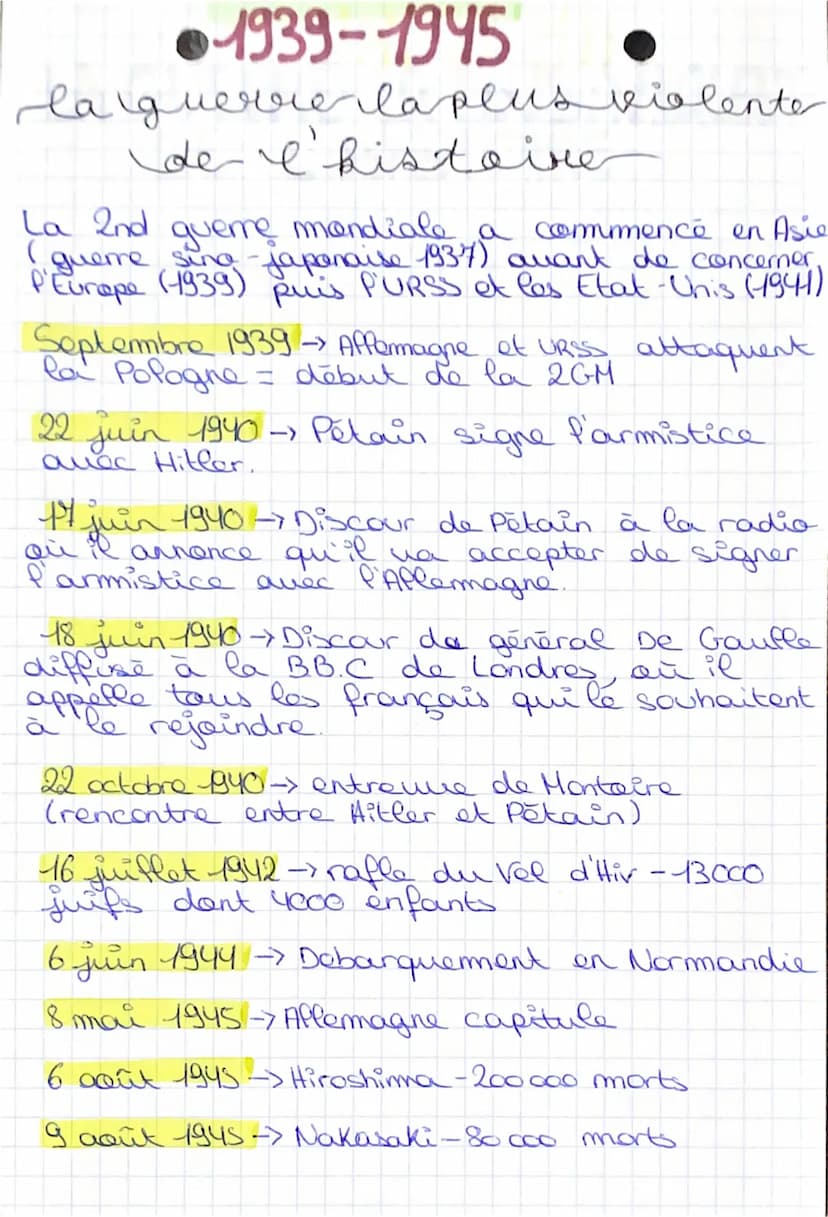 1939-1945
la guerre la plus violente
de l'histoire
La 2nd guerre mondiale a commencé en Asie
(guerre sino-japonaise 1937) avant de concerner
l'Europe (1939) puis l'URSS et les Etat-Unis (1941)
Septembre 1939 → Allemagne et URSS attaquent
la Pologne = début de la 2GM
22 juin 1940 → Pétain signe l'armistice
avec Hitler.
17 juin 1940 → Discour de Pétain à la radio
où il annonce qu'il va accepter de signer
l'armistice avec l'Allemagne.
18 juin 1940 → Discour du général De Gaulle
diffusé à la BB.C de Londres, où il
appelle tous les français qui le souhaitent
à le rejoindre.
22 octobre 1940 → entrevue de Montoire
(rencontre entre Hitler et Pétain)
16 juillet 1942 → rafle du Vel d'Hiv - 13000
juifs dont 4000 enfants
6 juin 1944 → Debarquement en Normandie
8 mai 1945 → Allemagne capitule
6 août 1945 → Hiroshima - 200 000 morts
9 août 1945 → Nakasaki - 80 000 morts